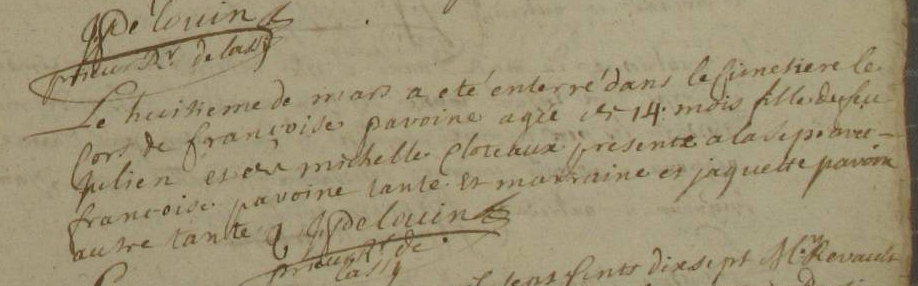 J Delouin
prieur Rr de lassy
Le huitieme de mars a eté enterré dans le simetiere le
Cors de françoise pavoine agée de 14 mois fille de feu
julien et de michelle Cloteaux presente a la sep
francoise pavoine tante et marraine et jaquette pavoin
autre tante J Delouin
prieur Rr de
lassy
sept cents dixsept Mr Revault